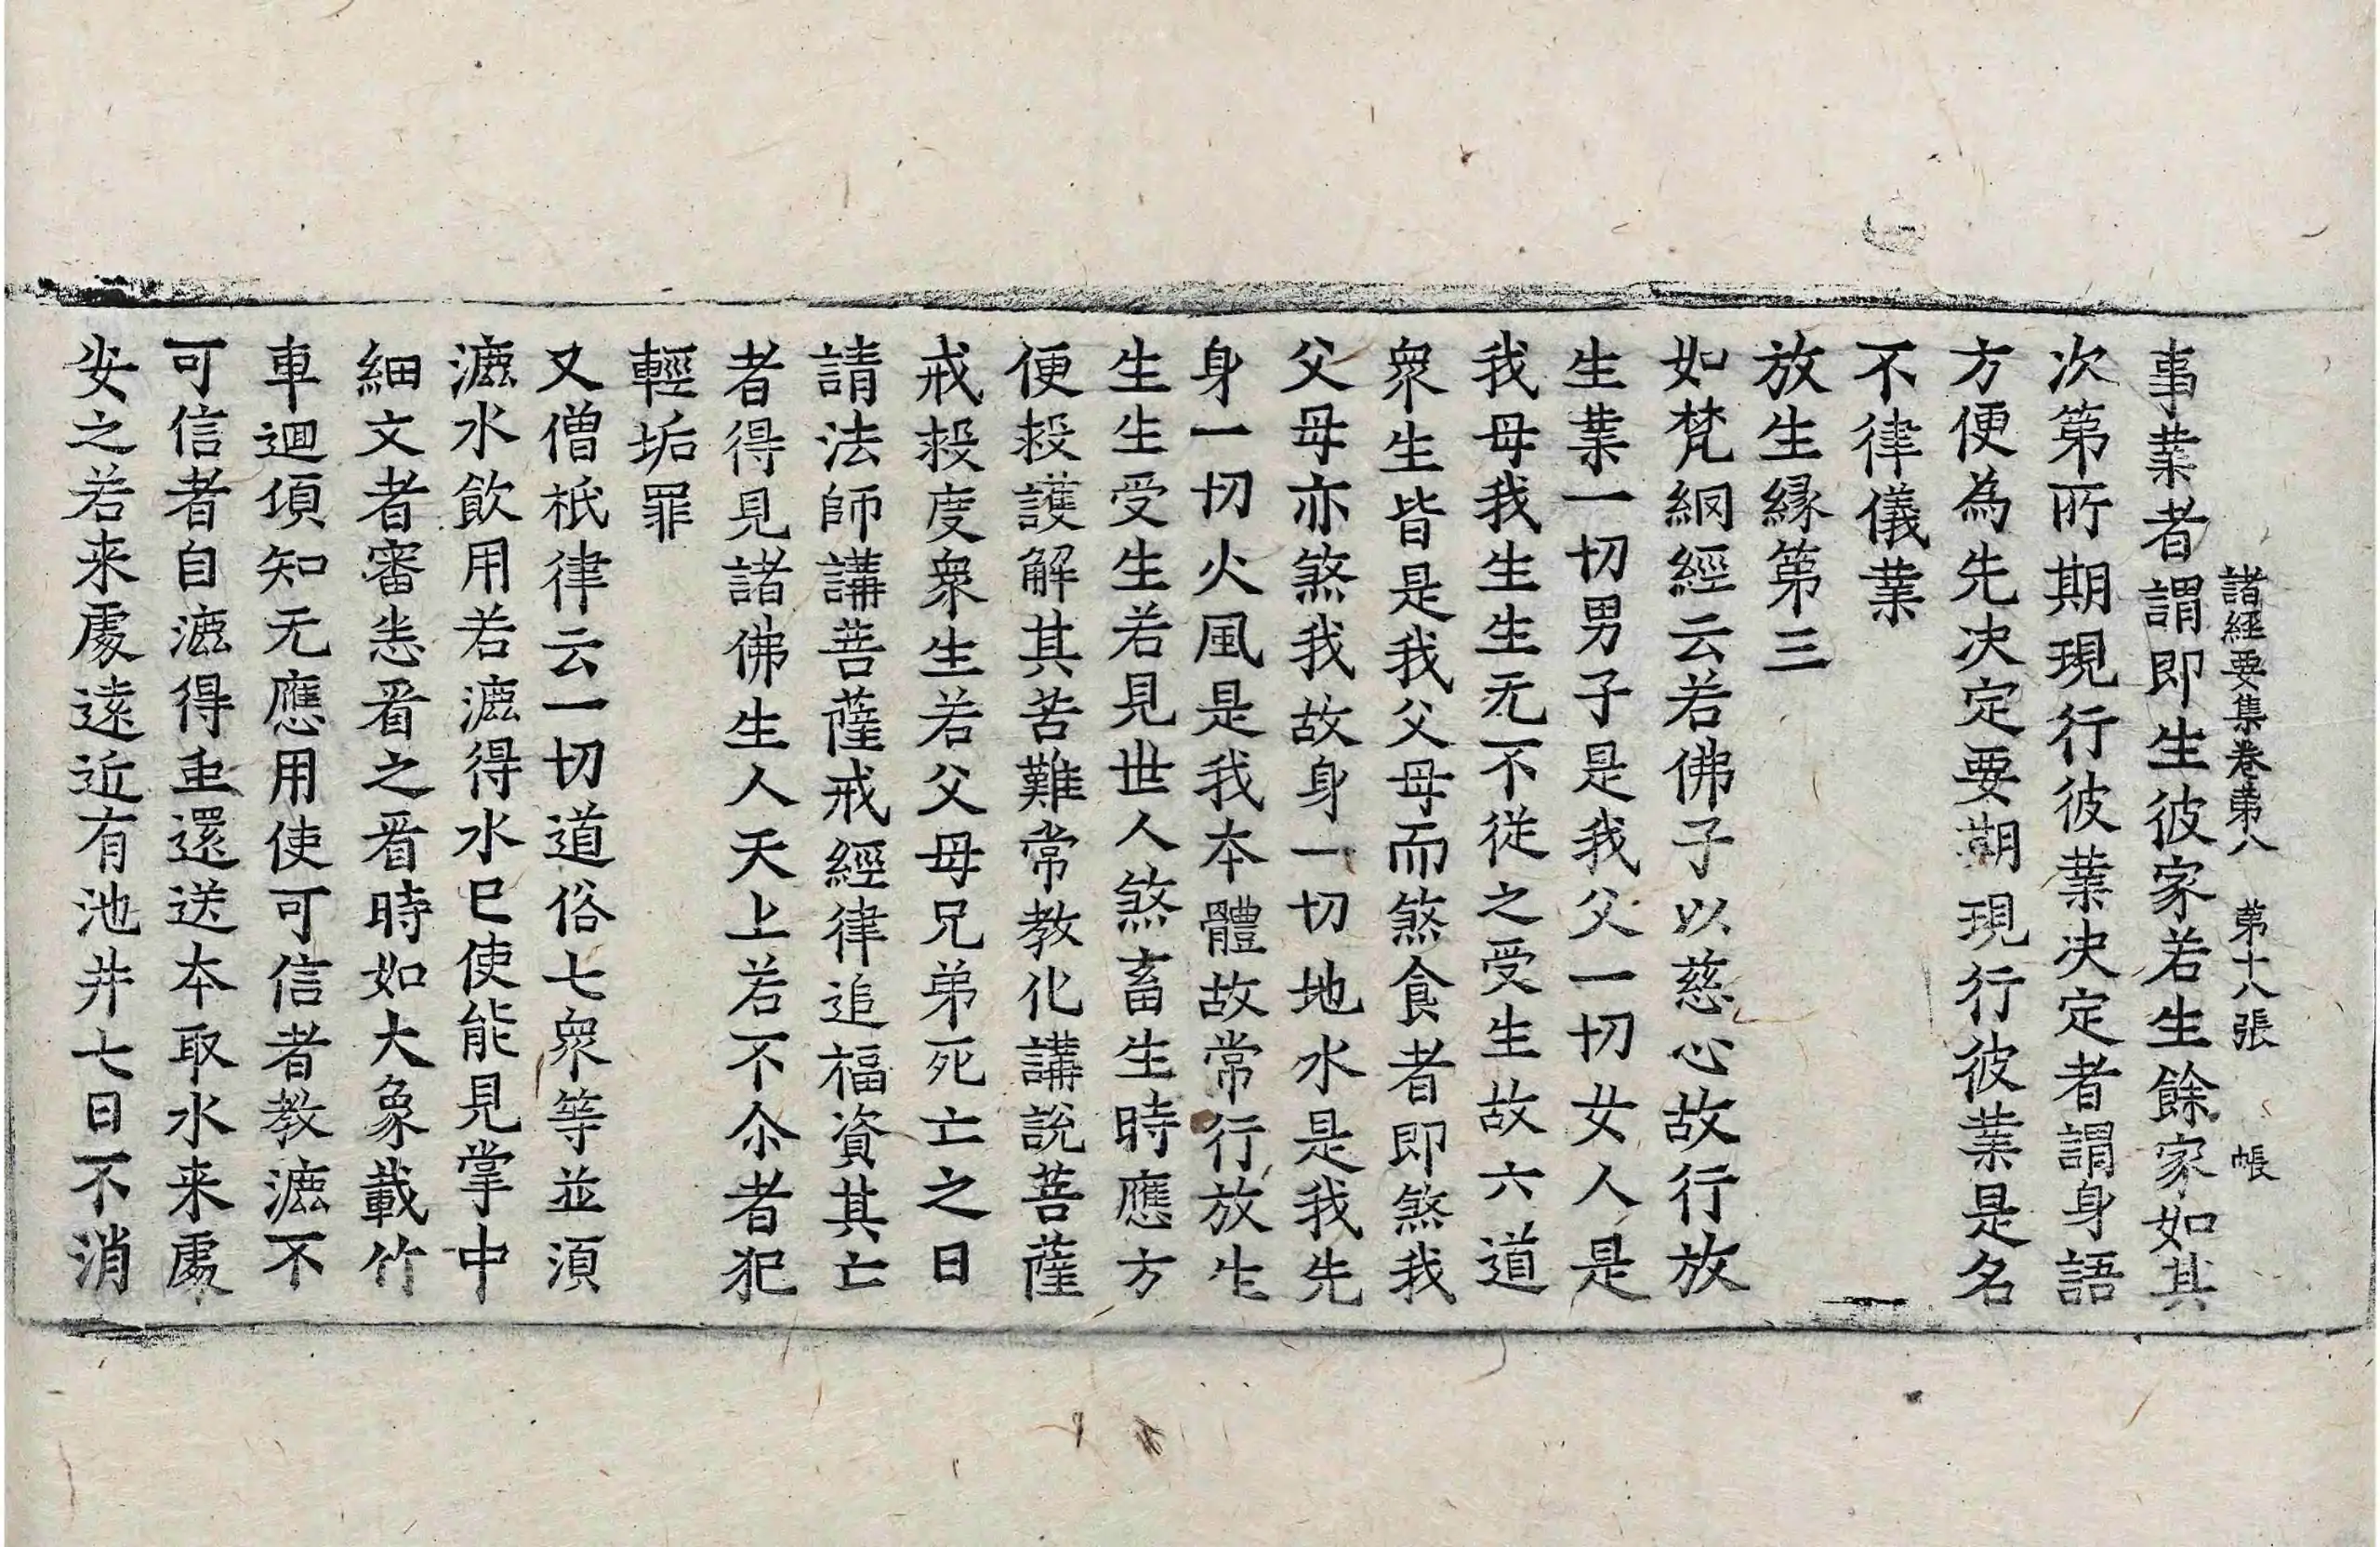 諸經要集卷第八　第十八張　帳
事業者謂即生彼家若生餘家如其
次第所期現行彼業决定者謂身語
方便為先决定要期現行彼業是名
不律儀業
放生縁第三
如梵網經云若佛子以慈心故行放
生業一切男子是我父一切女人是
我母我生生无不從之受生故六道
衆生皆是我父母而煞食者即煞我
父母亦煞我故身一切地水是我先
身一切火風是我本體故常行放生
生生受生若見世人煞畜生時應方
便救護解其苦難常教化講說菩薩
戒救度衆生若父母兄弟死亡之日
請法師講菩薩戒經律追福資其亡
者得見諸佛生人天上若不尒者犯
輕垢罪
又僧祇律云一切道俗七衆等並湏
漉水飲用若漉得水已使能見掌中
細文者審悉看之看時如大象載竹
車迴頃知无應用使可信者教漉不
可信者自漉得虫還送本取水来處
安之若来處遠近有池井七日不消